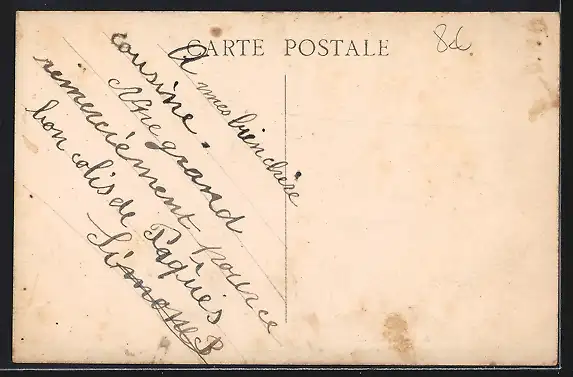 CARTE POSTALE
8€
A mes bien chère
cousine.
Mne grand
remerciément pour ce
bon colis de Pàques
Simone B